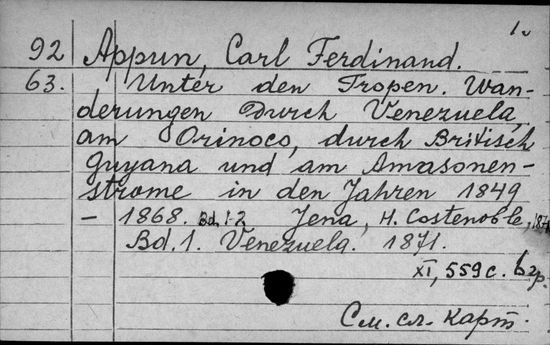 1.
92 Appun, Carl Ferdinand.
63. Unter den Tropen. Wan-
derungen durch Venezuela,
am Orinoco, durch Britisch
Guyana und am Amasonen-
strome in den Jahren 1849
– 1868. Bd. 1-2 Jena, H. Costenoble, 1871
Bd. 1. Venezuela. 1871.
XI, 559 с.
См. сл. карт.